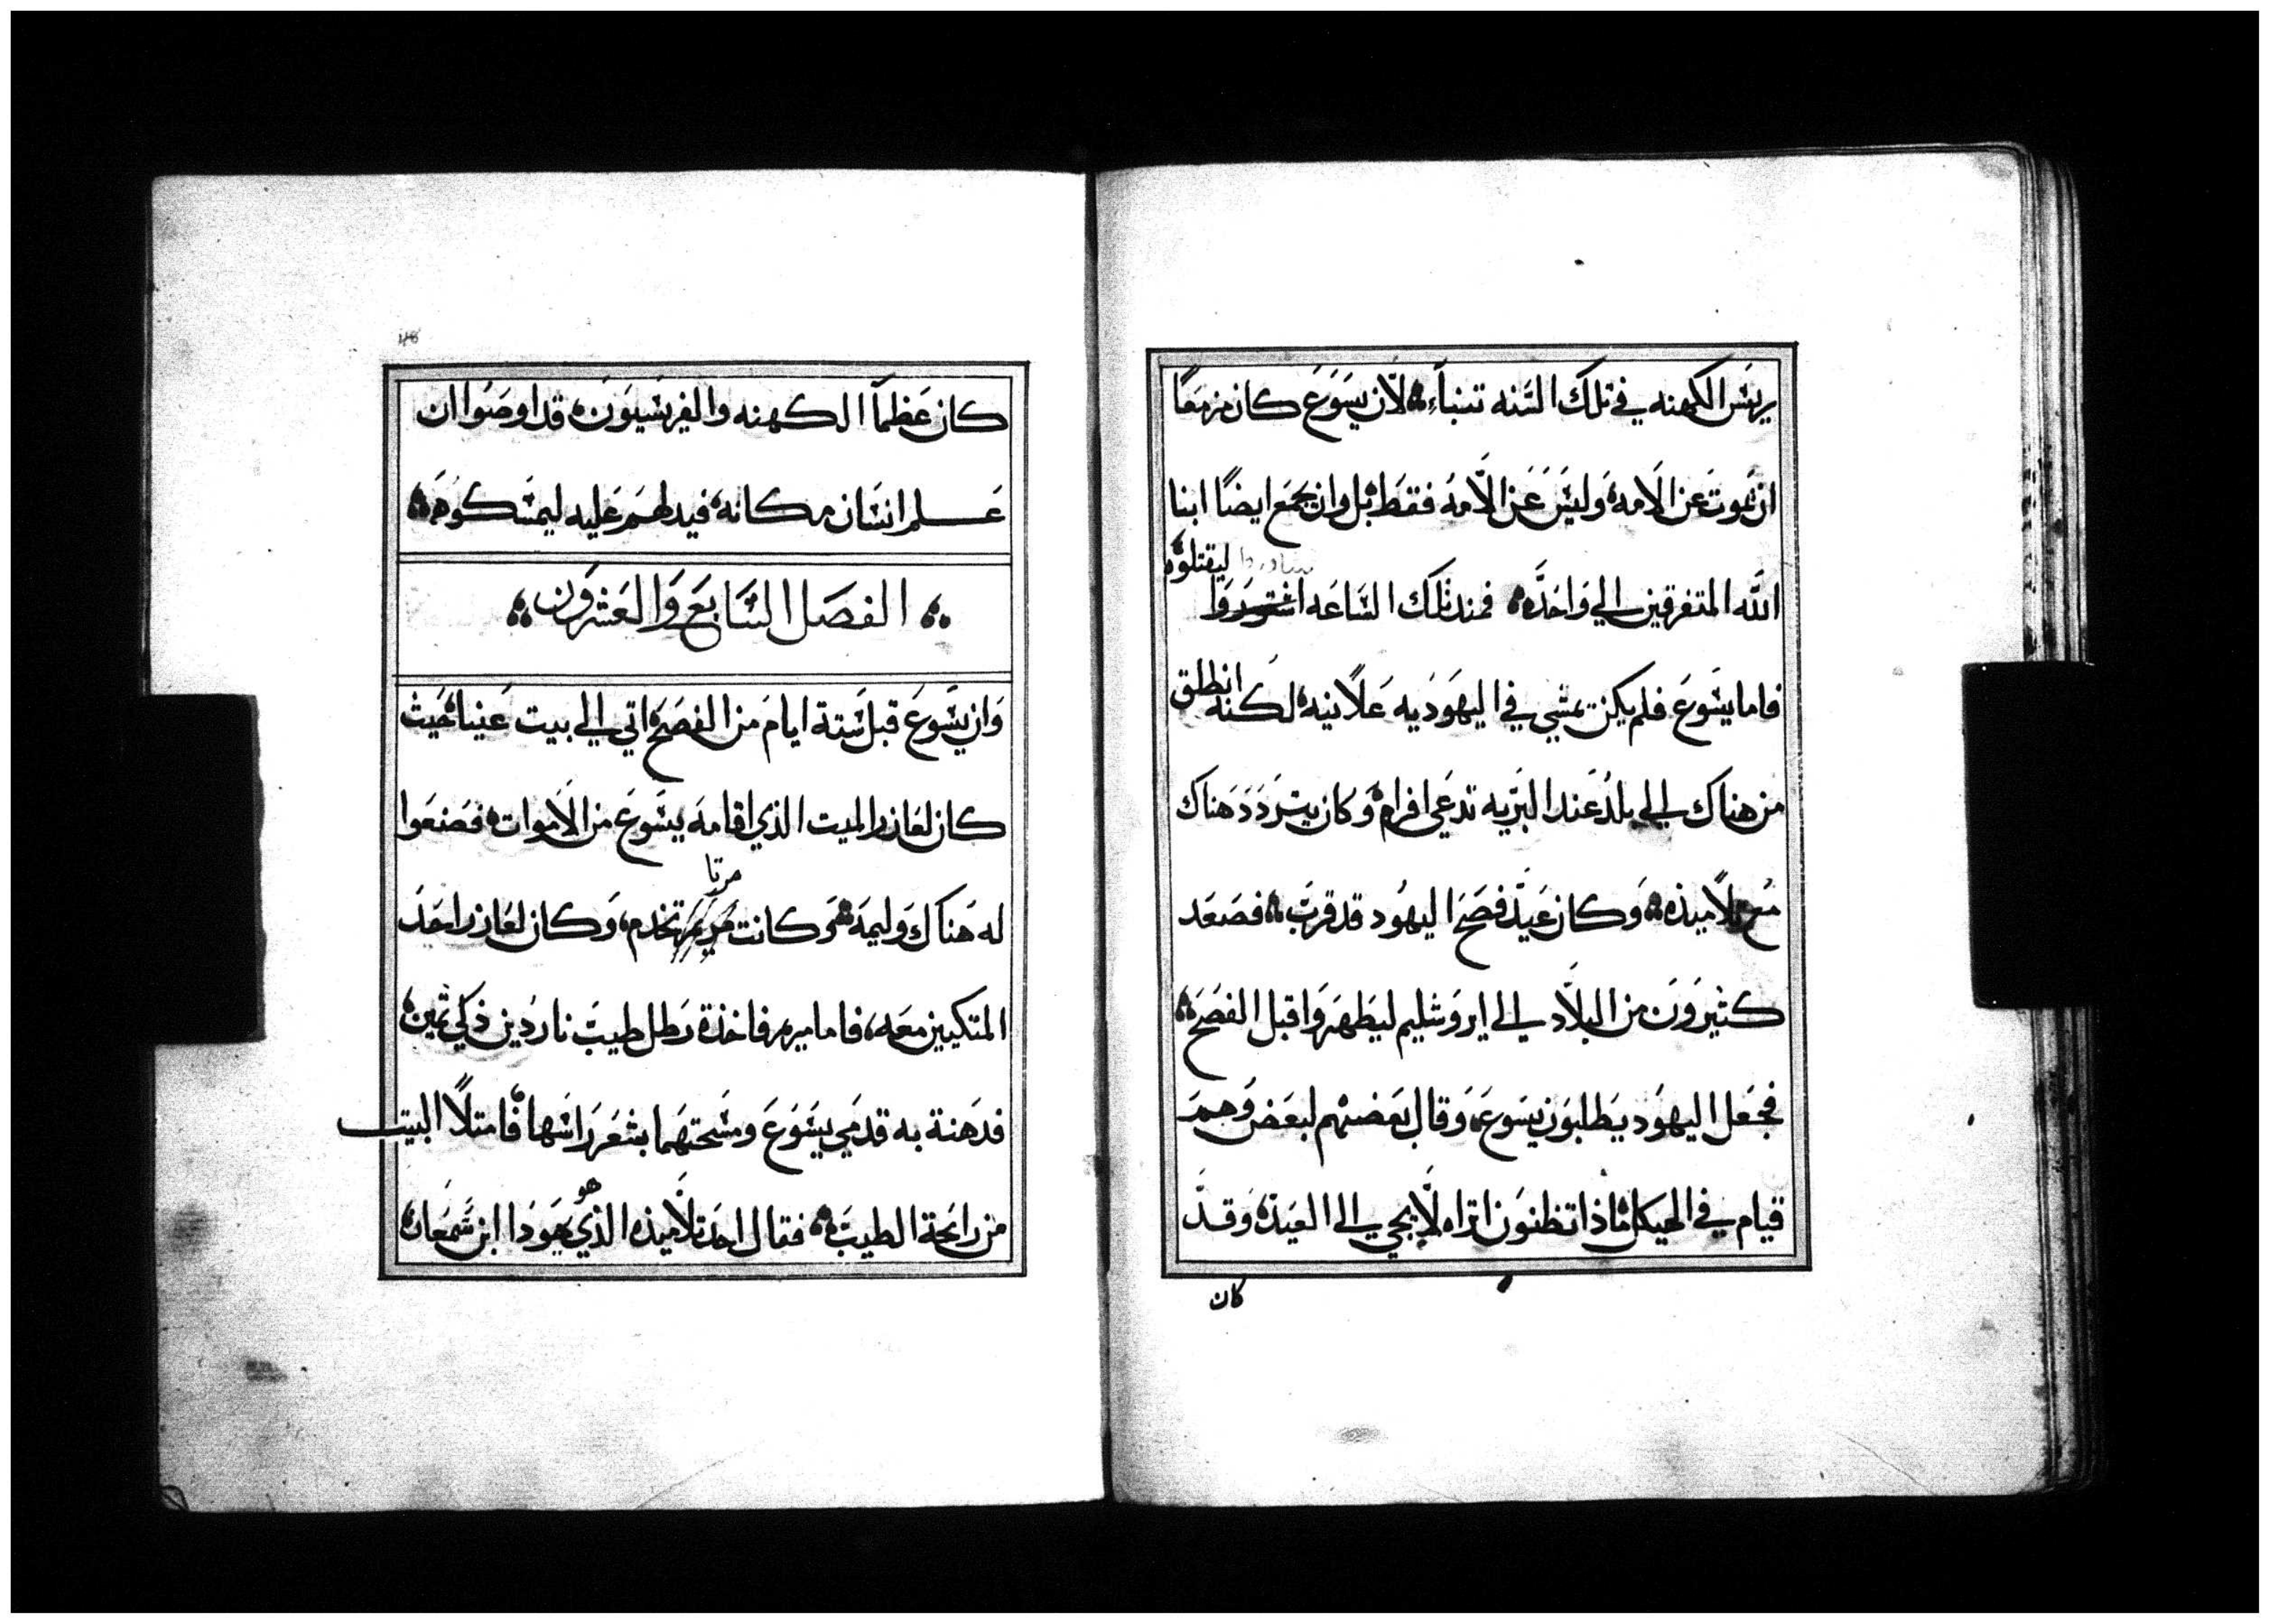 يريس الكهنه في تلك السنه تنباء لان يسوع كان مزمعا
ان يموت عن الامه وليس عن الامه فقط بل وان يجمع ايضا ابنا
ليقتلوه
الله المتفرقين الي واحده فمند تلك الساعه اشتوروا
فاما يسوع فلم يكن يمشي في اليهوديه علانيه لكنه انطلق
من هناك الي بلد عند البريه تدعي افرام وكان يتردد هناك
مع تلاميذه وكان عيد فصح اليهود قد قرب فصعد
كثيرون من البلاد الي ايروشليم ليطهروا قبل الفصح
فجعل اليهود يطلبون يسوع وقال بعضهم لبعض وهم
قيام في الهيكل ماذا تظنون اتراه لا يجي الي العيد وقد
كان
كان عظما الكهنه والفريسيون قد اوصوا ان
علم انسان مكانه فيدلهم عليه ليمسكوه
الفصل السابع والعشرون
وان يسوع قبل ستة ايام من الفصح اتي الي بيت عنيا حيث
كان لعازر الميت الذي اقامه يسوع من الاموات فصنعوا
مرتا
له هناك وليمه وكانت مريم تخدم وكان لعازر احد
المتكيين معه فاما مريم فاخذة رطل طيب ناردين ذكي ثمين
فدهنة به قدمي يسوع ومسحتهما بشعر راسها فامتلا البيت
هو
من رايحة الطيب فقال احد تلاميذه الذي يهودا ابن شمعان